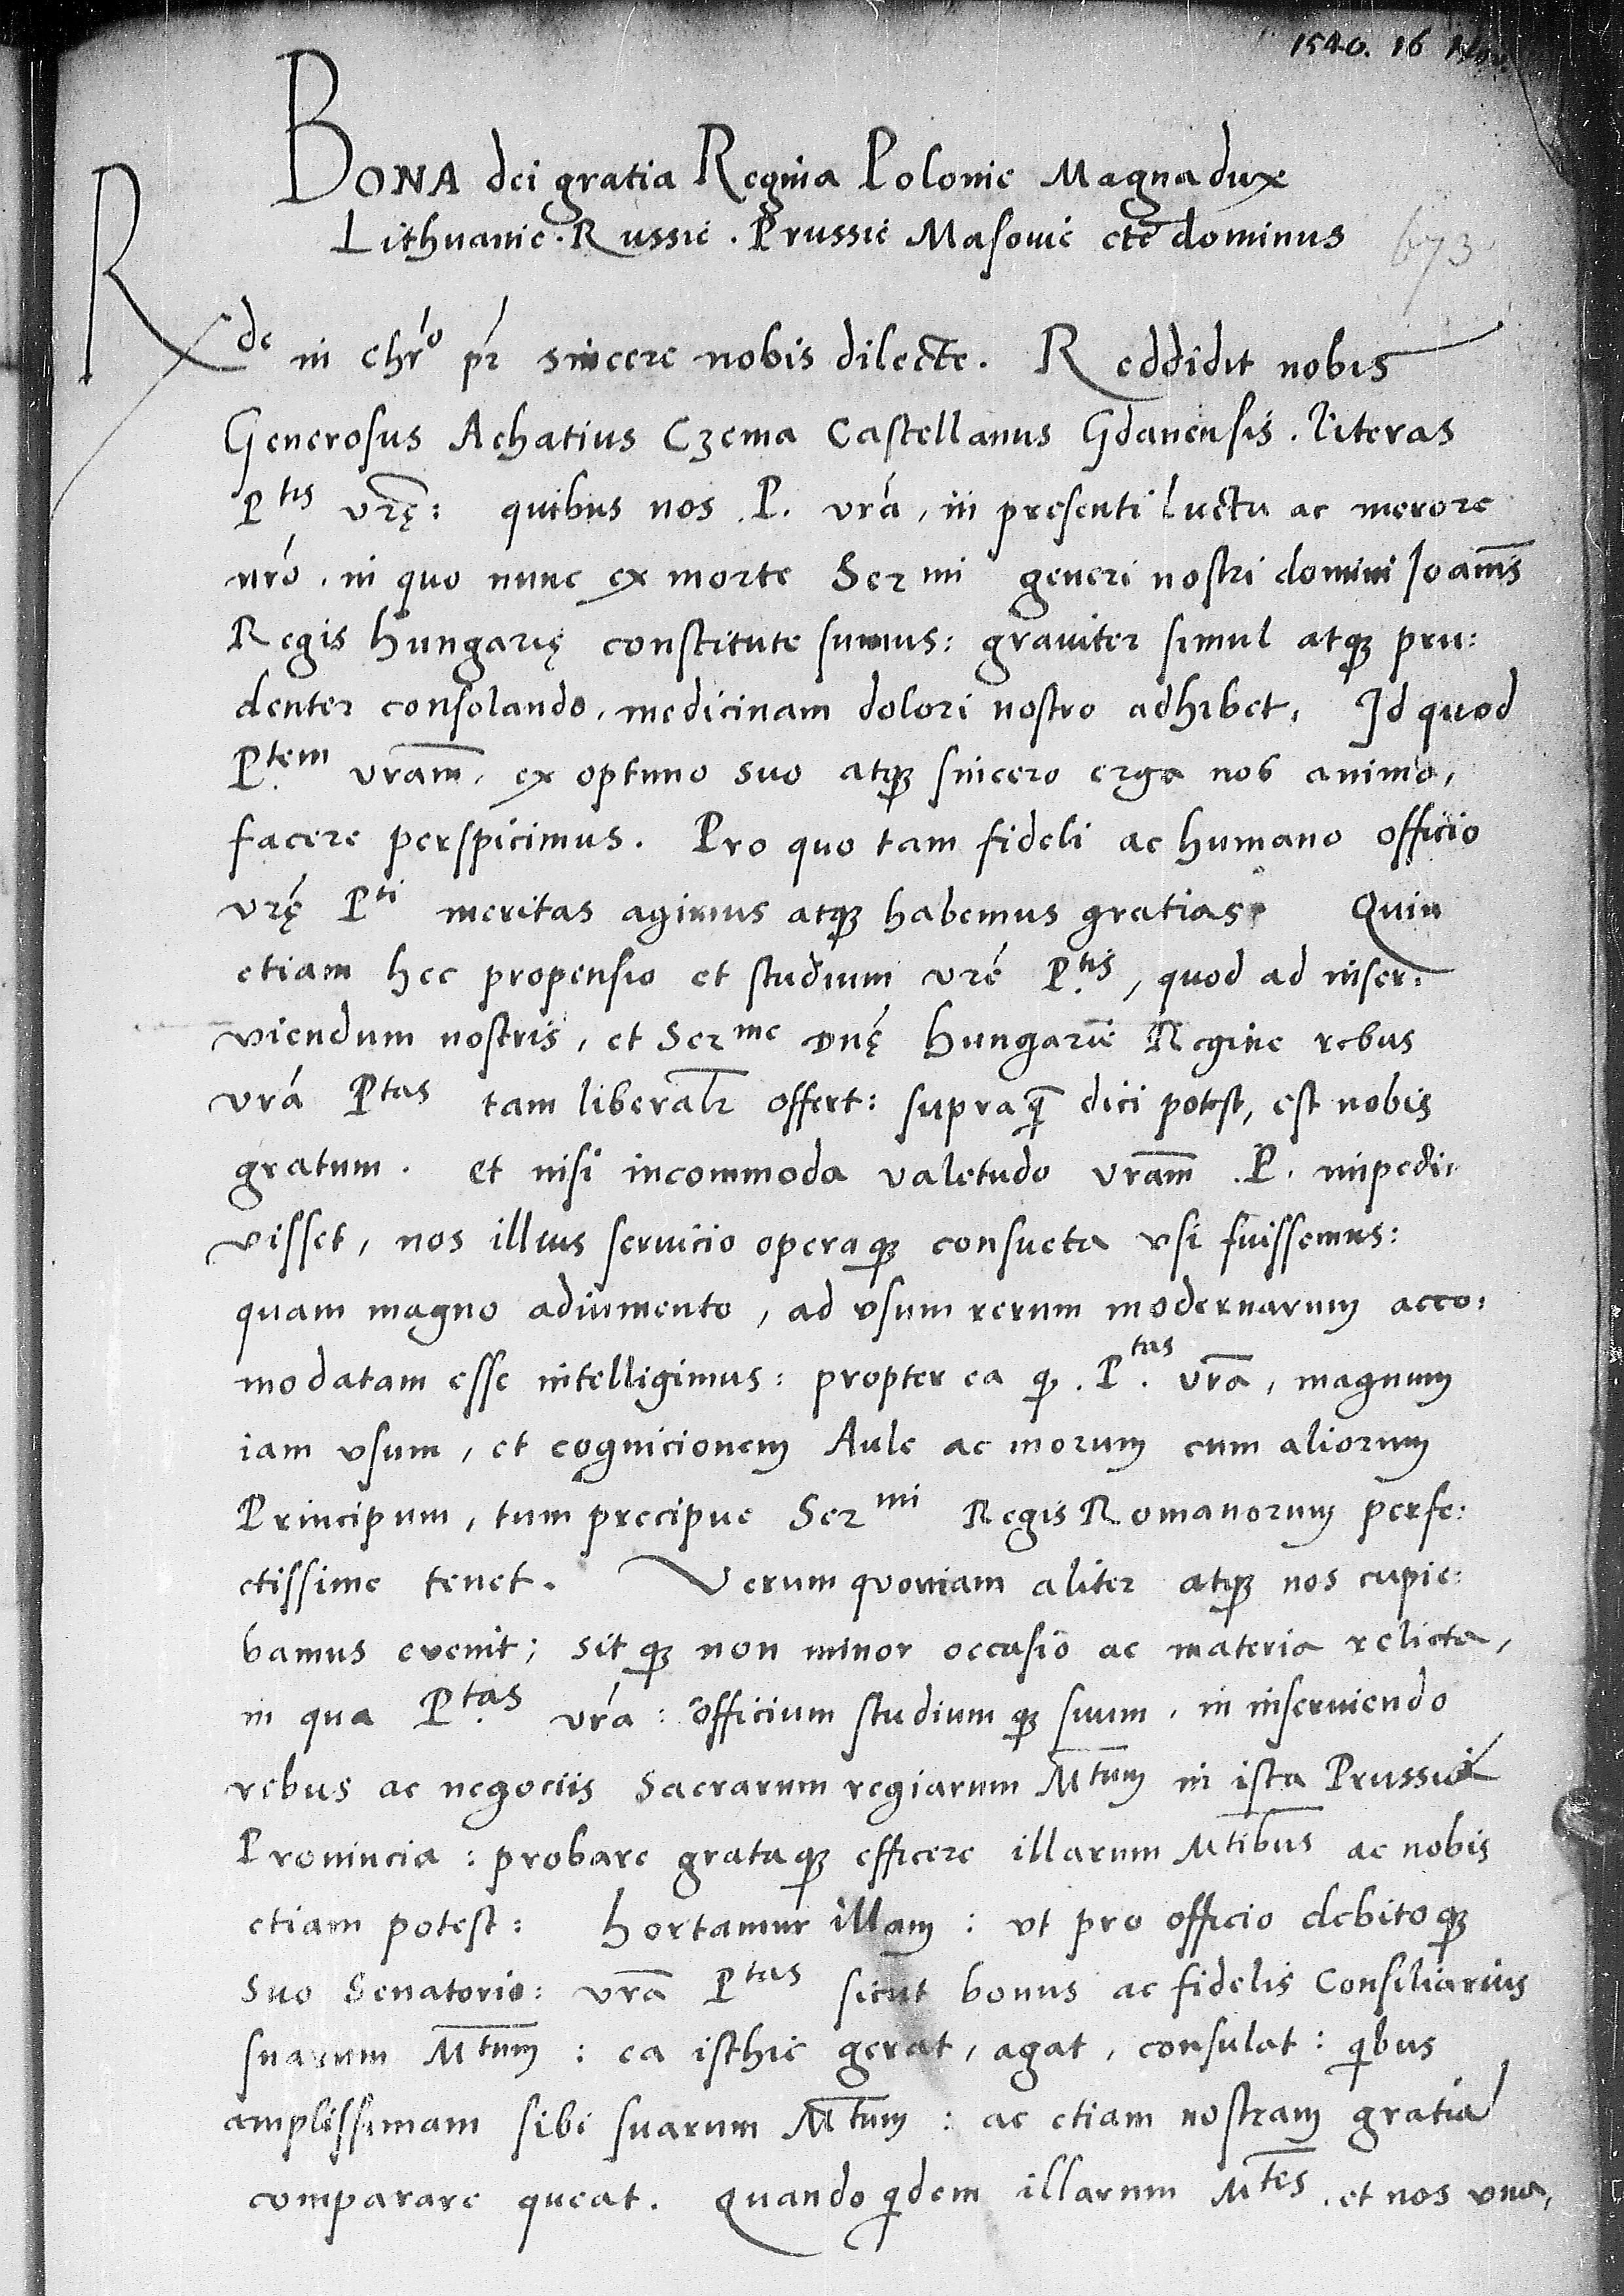 1540. 16 Nov.
BONA dei gratia Regina Polonie Magna dux
Lithuanie. Russie. Prussie Masovie etc̄ domina
673
Rde in chro pr sincere nobis dilecte. Reddidit nobis
Generosus Achatius Czema Castellanus Gdanensis. literas
Ptis vrę: quibus nos .P. vra, in presenti luctu ac merore
nro. in quo nunc ex morte Sermi generi nostri domini Ioannis
Regis hungarię constitute sumus: graviter simul atqȝ pru:
denter consolando, medicinam dolori nostro adhibet, Id quod
Ptem vram, ex optimo suo atqȝ sincero erga nos animo,
facere perspicimus. Pro quo tam fideli ac humano officio
vrę Pti meritas agimus atqȝ habemus gratias. Quin
etiam hec propensio et studium vre Ptis, quod ad inser:
viendum nostris, et Serme Dnę hungarie Regine rebus
vra Ptas tam liberalr offert: supra q̄ dici potest, est nobis
gratum. et nisi incommoda valetudo vram .P. impedi:
visset, nos illius servicio operaqȝ consueta vsi fuissemus:
quam magno adiumento, ad vsum rerum modernarum acco:
modatam esse intelligimus: propter ea qȝ .Ptas. vra, magnum
iam vsum, et cognicionem Aule ac morum cum aliorum
Principum, tum precipue Sermi Regis Romanorum perfe:
ctissime tenet. Verum quoniam aliter atqȝ nos cupie:
bamus evenit; sitqȝ non minor occasio ac materia relicta,
in qua Ptas vra: officium studiumqȝ suum, in inserviendo
rebus ac negociis Sacrarum regiarum Mtum in ista Prussie
Provincia: probare grataqȝ efficere illarum Mtibus ac nobis
etiam potest: hortamur illam: vt pro officio debitoqȝ
suo Senatorio: vra Ptas sicut bonus ac fidelis Consiliarius
suarum Mtum: ea isthic gerat, agat, consulat: qibus
amplissimam sibi suarum Mtum: ac etiam nostram gratiā
comparare queat. Quando qidem illarum Mtes. et nos vna,